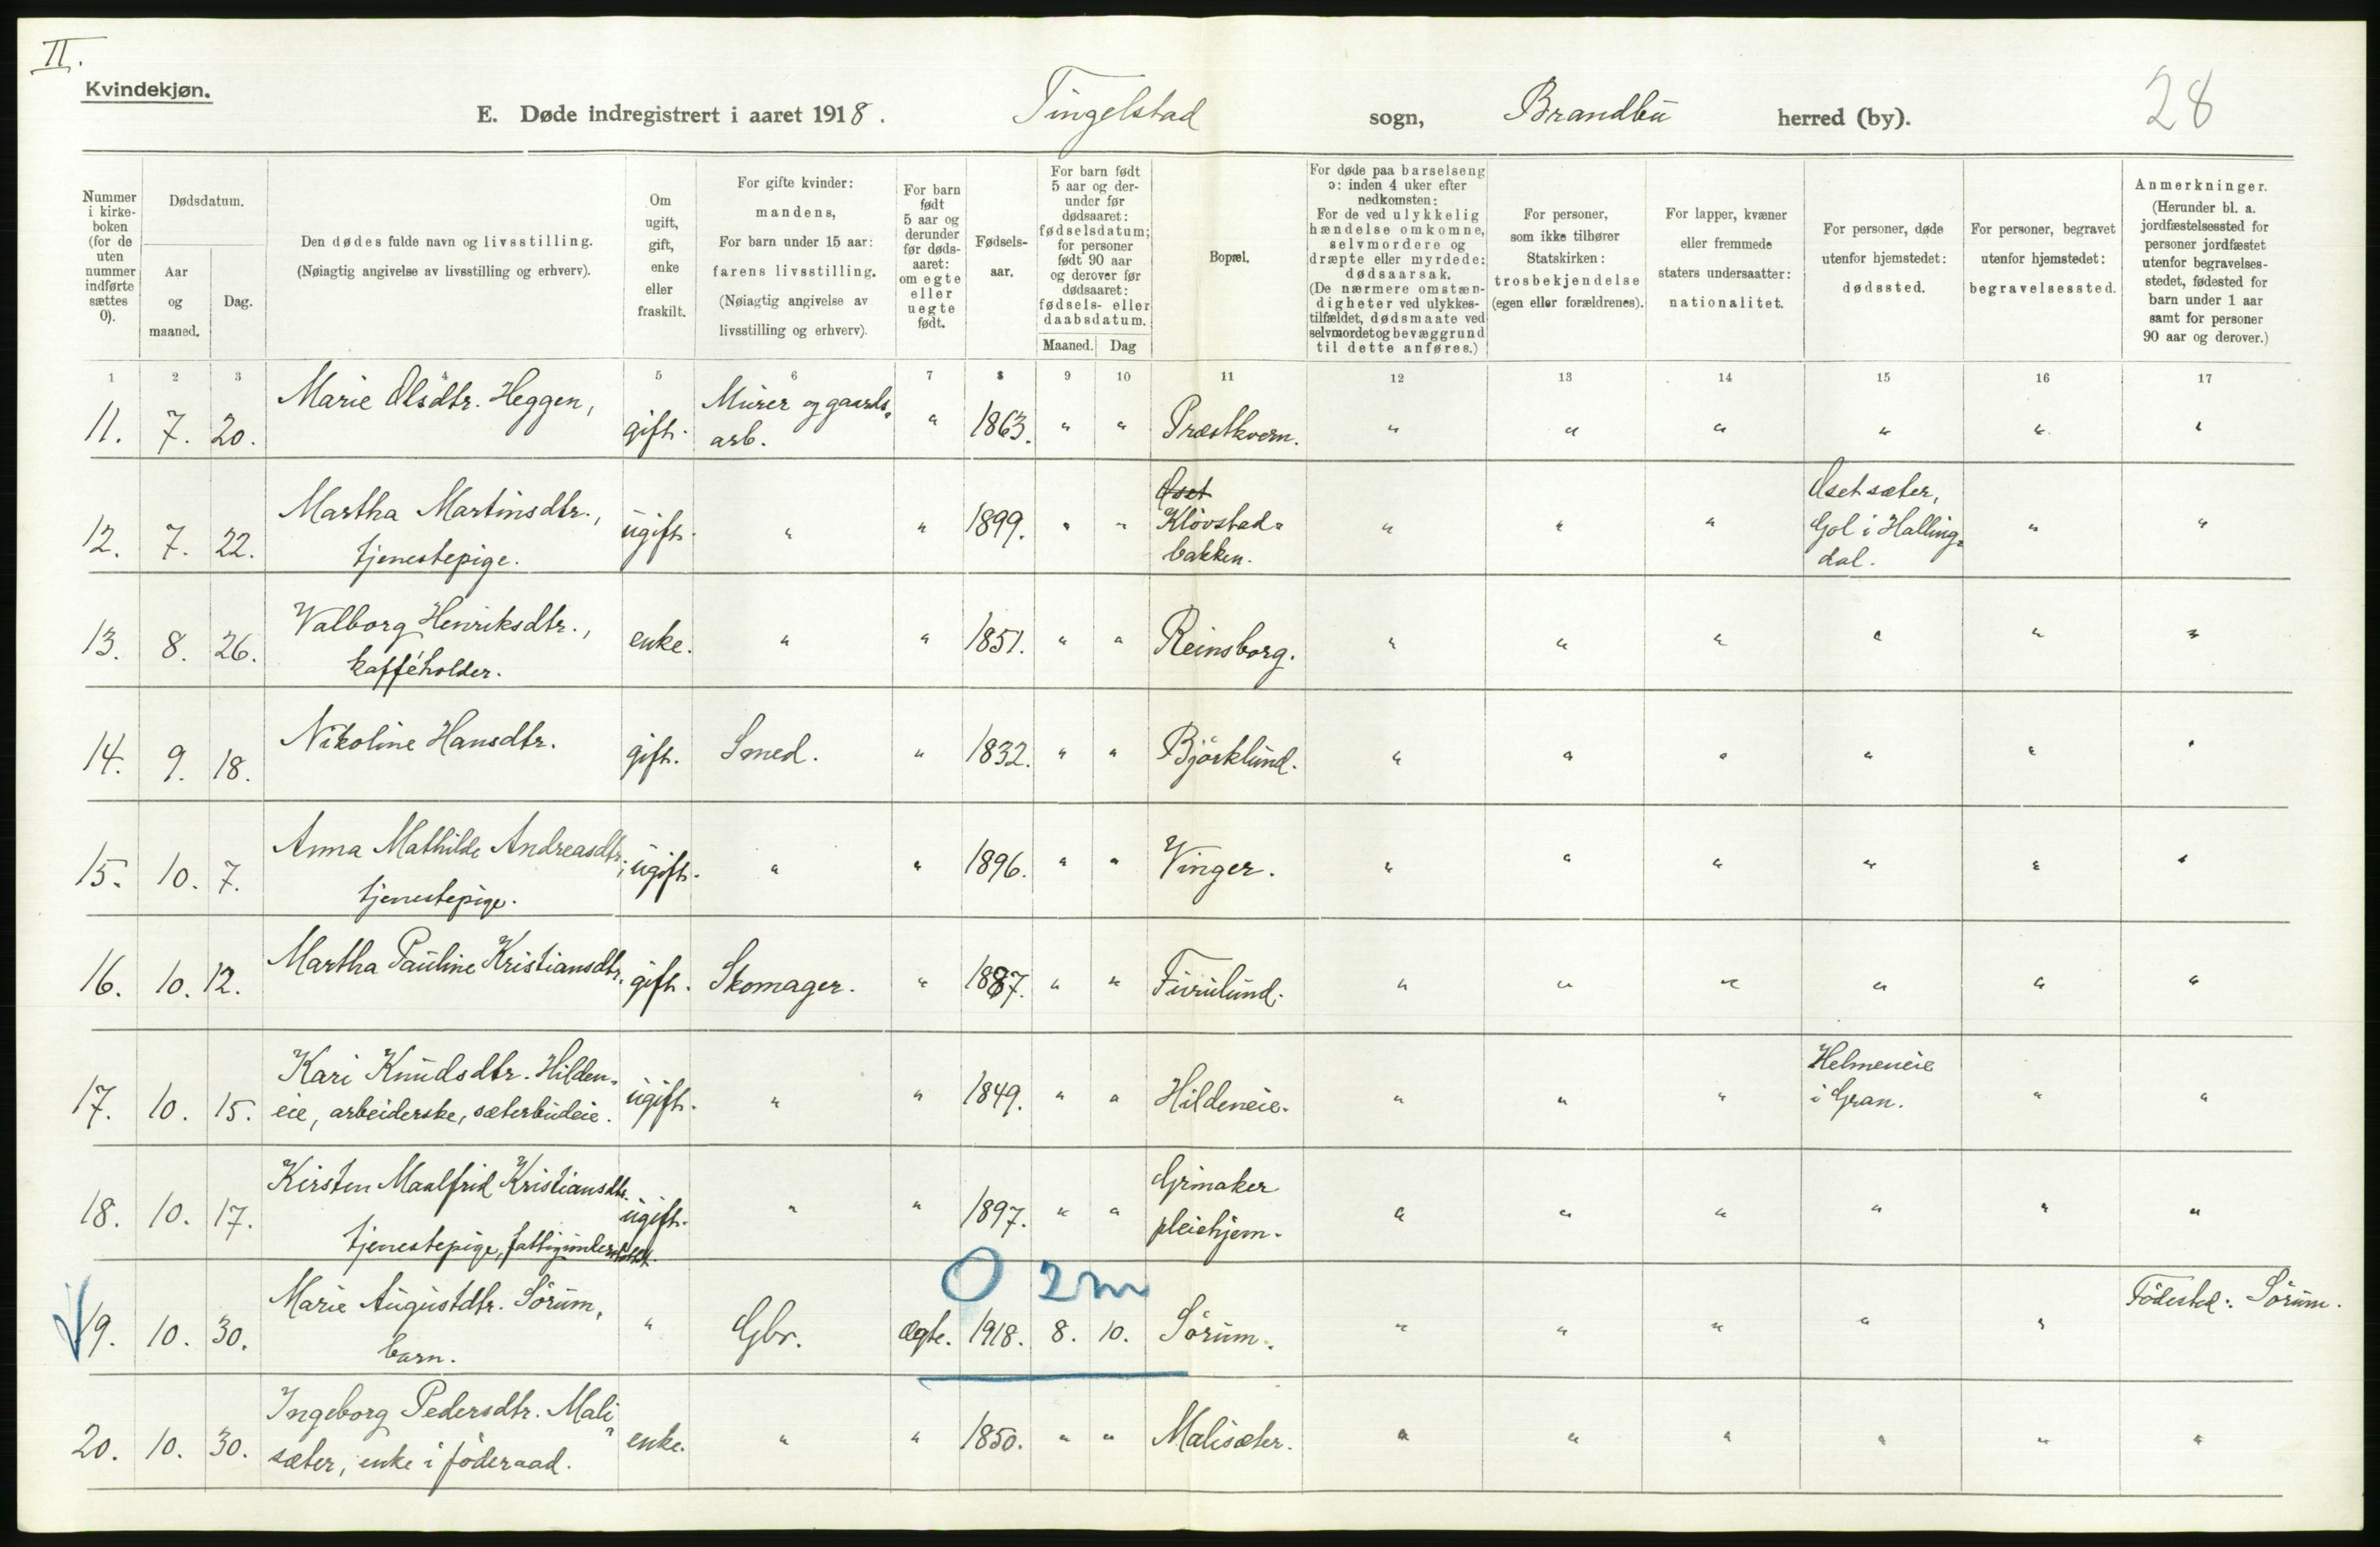 II.
Kvindekjøn.
E. Døde indregistrert i aaret 1918. Tingelstad sogn, Brandbu herred (by). 28
Nummer i kirke-boken (for de uten nummer indførte sættes 0).
Dødsdatum.
Aar og maaned.
Dag.
Den dødes fulde navn og livsstilling.
(Nøiagtig angivelse av livsstilling og erhverv).
Om ugift, gift, enke eller fraskilt.
For gifte kvinder: mandens,
For barn under 15 aar: farens livsstilling.
(Nøiagtig angivelse av livsstilling og erhverv).
For barn født 5 aar og derunder før døds-aaret: om egte eller uegte født.
Fødsels-aar.
For barn født 5 aar og der-under før dødsaaret: fødselsdatum; for personer født 90 aar og derover før dødsaaret: fødsels- eller daabsdatum.
Maaned. Dag
Bopæl.
For døde paa barselseng ɔ: inden 4 uker efter nedkomsten:
For de ved ulykkelig hændelse omkomne, selvmordere og dræpte eller myrdede: dødsaarsak.
(De nærmere omstæn-digheter ved ulykkes-tilfældet, dødsmaate ved selvmordet og bevæggrund til dette anføres.)
For personer, som ikke tilhører Statskirken: trosbekjendelse (egen eller forældrenes).
For lapper, kvæner eller fremmede staters undersaatter: nationalitet.
For personer, døde utenfor hjemstedet: dødssted.
For personer, begravet utenfor hjemstedet: begravelsessted.
Anmerkninger.
(Herunder bl. a. jordfæstelsessted for personer jordfæstet utenfor begravelses-stedet, fødested for barn under 1 aar samt for personer 90 aar og derover.)
1 2 3 4 5 6 7 8 9 10 11 12 13 14 15 16 17
11. 7. 20. Marie Olsdtr. Heggen, gift. Murer og gaards-arb. " 1863. " " Præstkvern. " " " " " "
12. 7. 22. Martha Martinsdtr., tjenestepige. ugift. " " 1899. " " Oset Kløvstad-bakken. " " " Oset sæter, Gol i Halling-dal. " "
13. 8. 26. Valborg Henriksdtr., kafféholder. enke. " " 1851. " " Reinsborg. " " " " " "
14. 9. 18. Nikoline Hansdtr. gift. Smed. " 1832. " " Bjørklund. " " " " " "
15. 10. 7. Anna Mathilde Andreasdtr., tjenestepige. ugift. " " 1896. " " Vinger. " " " " " "
16. 10. 12. Martha Pauline Kristiansdtr. gift. Skomager. " 1887. " " Furulund. " " " " " "
17. 10. 15. Kari Knudsdtr. Hilden-eie, arbeiderske, sæterbudeie. ugift. " " 1849. " " Hildeneie. " " " Helmeneie i Gran. " "
18. 10. 17. Kirsten Maalfrid Kristiansdtr. tjenestepige, fattigunderstøttet. ugift. " " 1897. " " Grinaker pleiehjem. " " " " " "
0 2m
19. 10. 30. Marie Augustdtr. Sørum, barn. " Gbr. ægte. 1918. 8. 10. Sørum. " " " " " Fødested: Sørum.
20. 10. 30. Ingeborg Pedersdtr. Mali-sæter, enke i føderaad. enke. " " 1850. " " Malisæter. " " " " " "